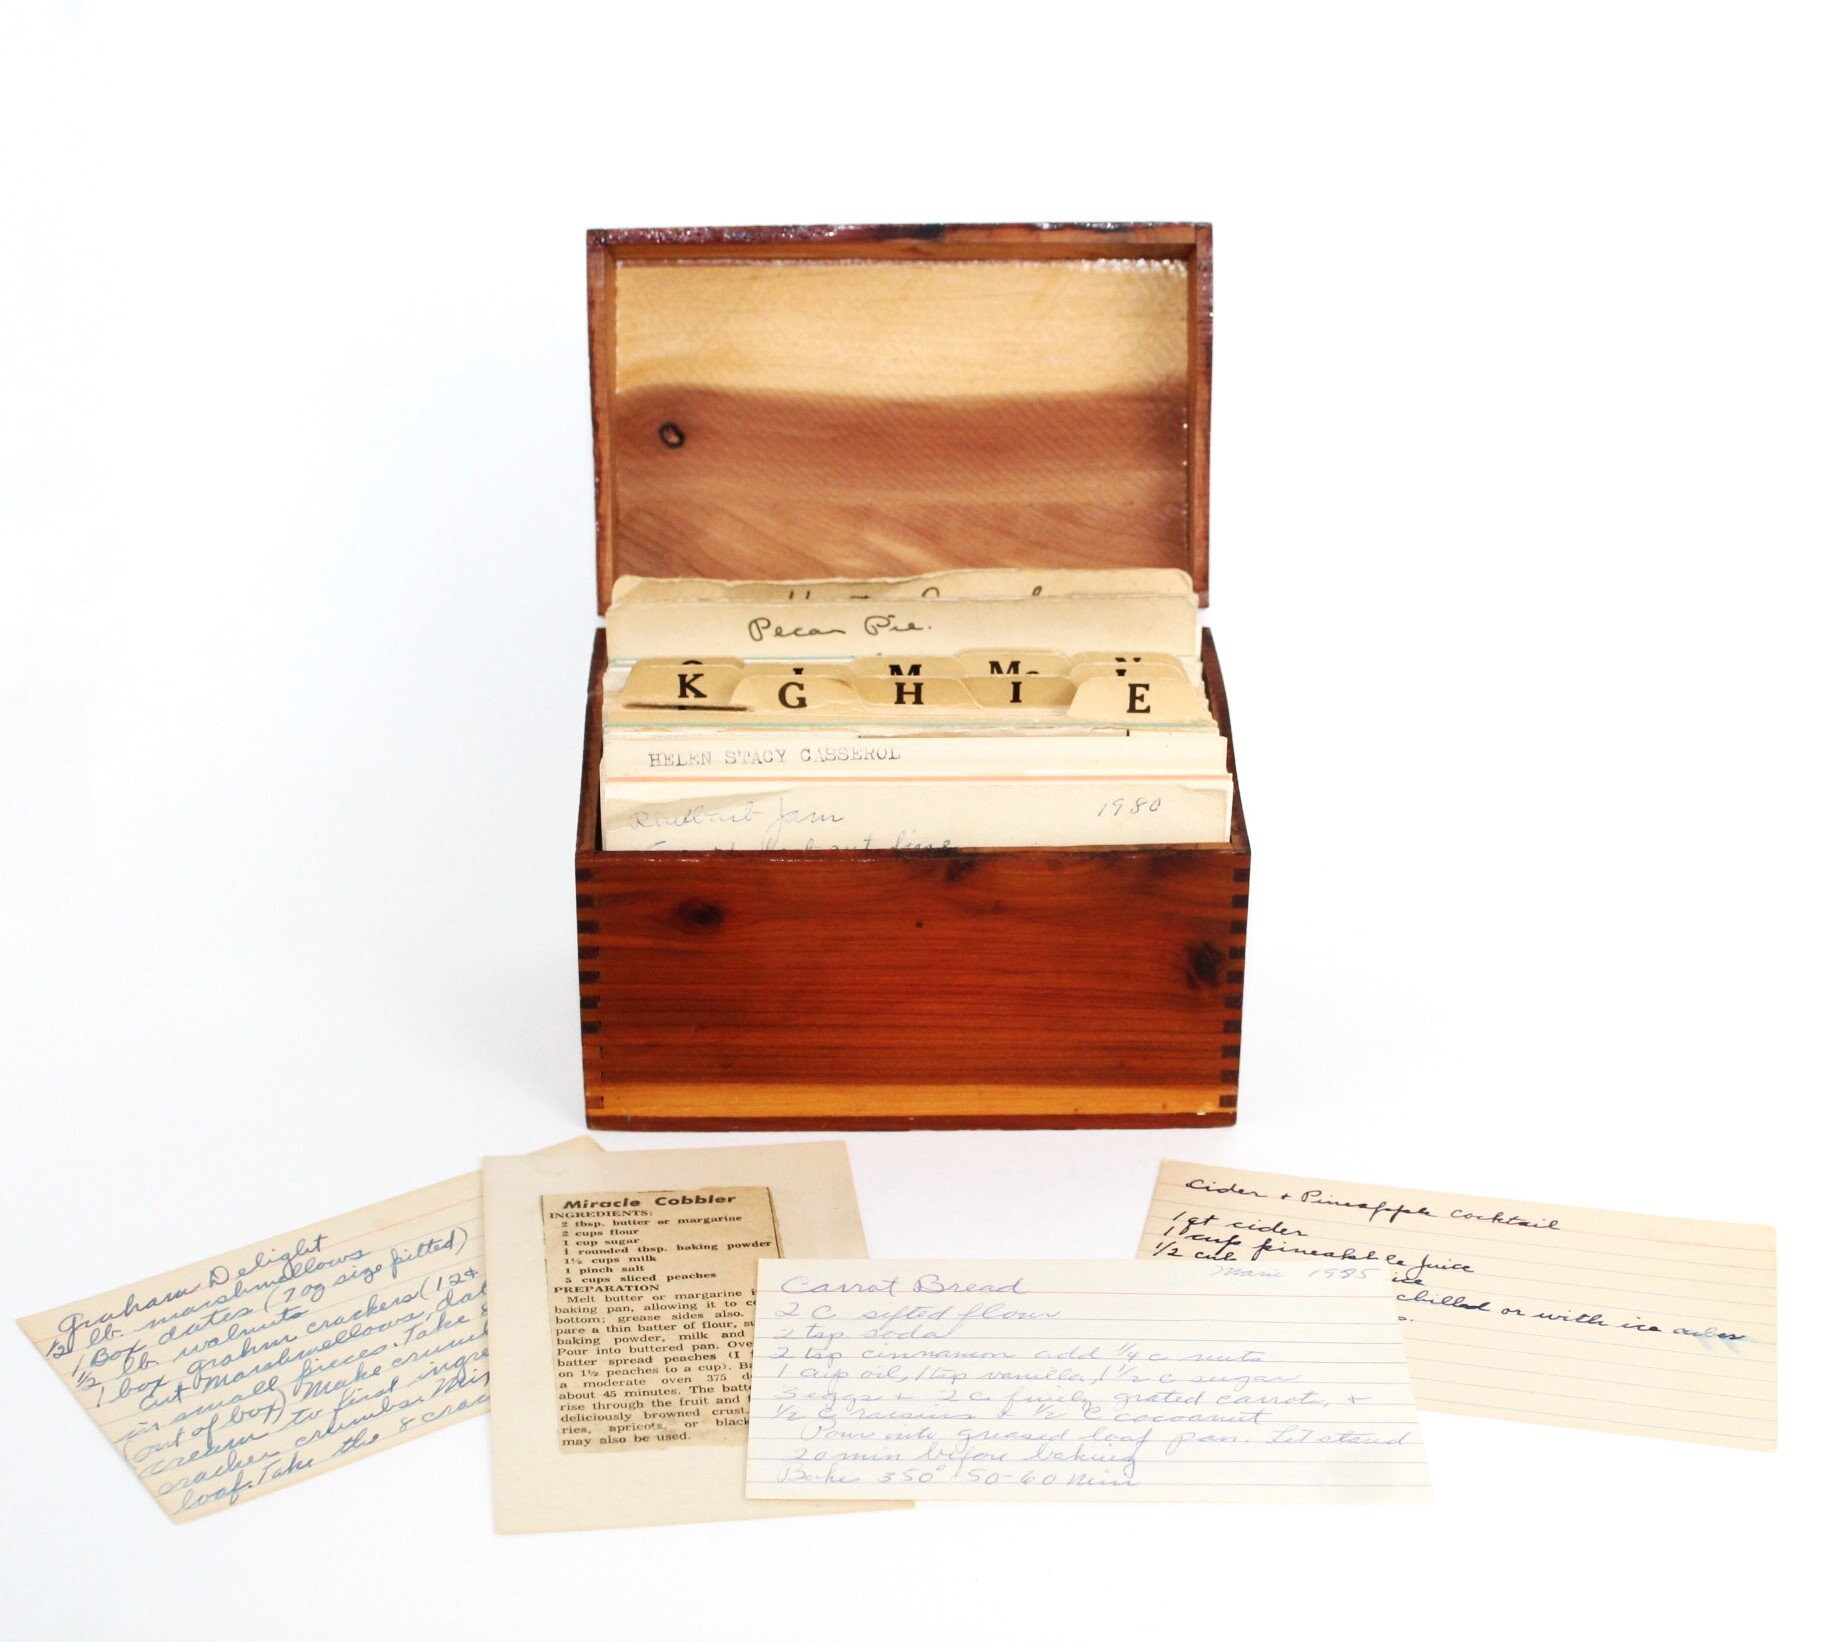 Pecan Pie.
M Mc N
K G H I E
HELEN STACY CASSEROL
Rhubarb Jam 1980
Graham Delight
1/2 lb. marshmallows
1 Box dates (7 oz size pitted)
1/2 lb walnuts
1 box grahm crackers (12
Cut marshmallows, dat
in small pieces. Take 8
(out of box) Make crumb
cream to first ingre
cracker crumbs. Mix
loaf. Take the 8 crac
Miracle Cobbler
INGREDIENTS:
2 tbsp. butter or margarine
2 cups flour
1 cup sugar
1 rounded tbsp. baking powder
1½ cups milk
1 pinch salt
5 cups sliced peaches
PREPARATION
Melt butter or margarine i
baking pan, allowing it to c
bottom; grease sides also.
pare a thin batter of flour, su
baking powder, milk and
Pour into buttered pan. Ove
batter spread peaches (I
on 1½ peaches to a cup). Ba
a moderate oven 375 d
about 45 minutes. The batt
rise through the fruit and
deliciously browned crust.
ries, apricots, or black
may also be used.
Carrot Bread Marie 1985
2 C sifted flour
2 tsp soda
2 tsp cinnamon add 1/4 c nuts
1 cup oil, 1 tsp vanilla, 1 1/2 c sugar
3 eggs + 2 C finely grated carrots, +
1/2 C raisins + 1/2 C cocoanut
Pour into greased loaf pan. Let stand
20 min before baking
Bake 350° 50-60 Min
Cider + Pineapple Cocktail
1 qt cider
1 cup pineapple juice
1/2 cup
chilled or with ice cubes